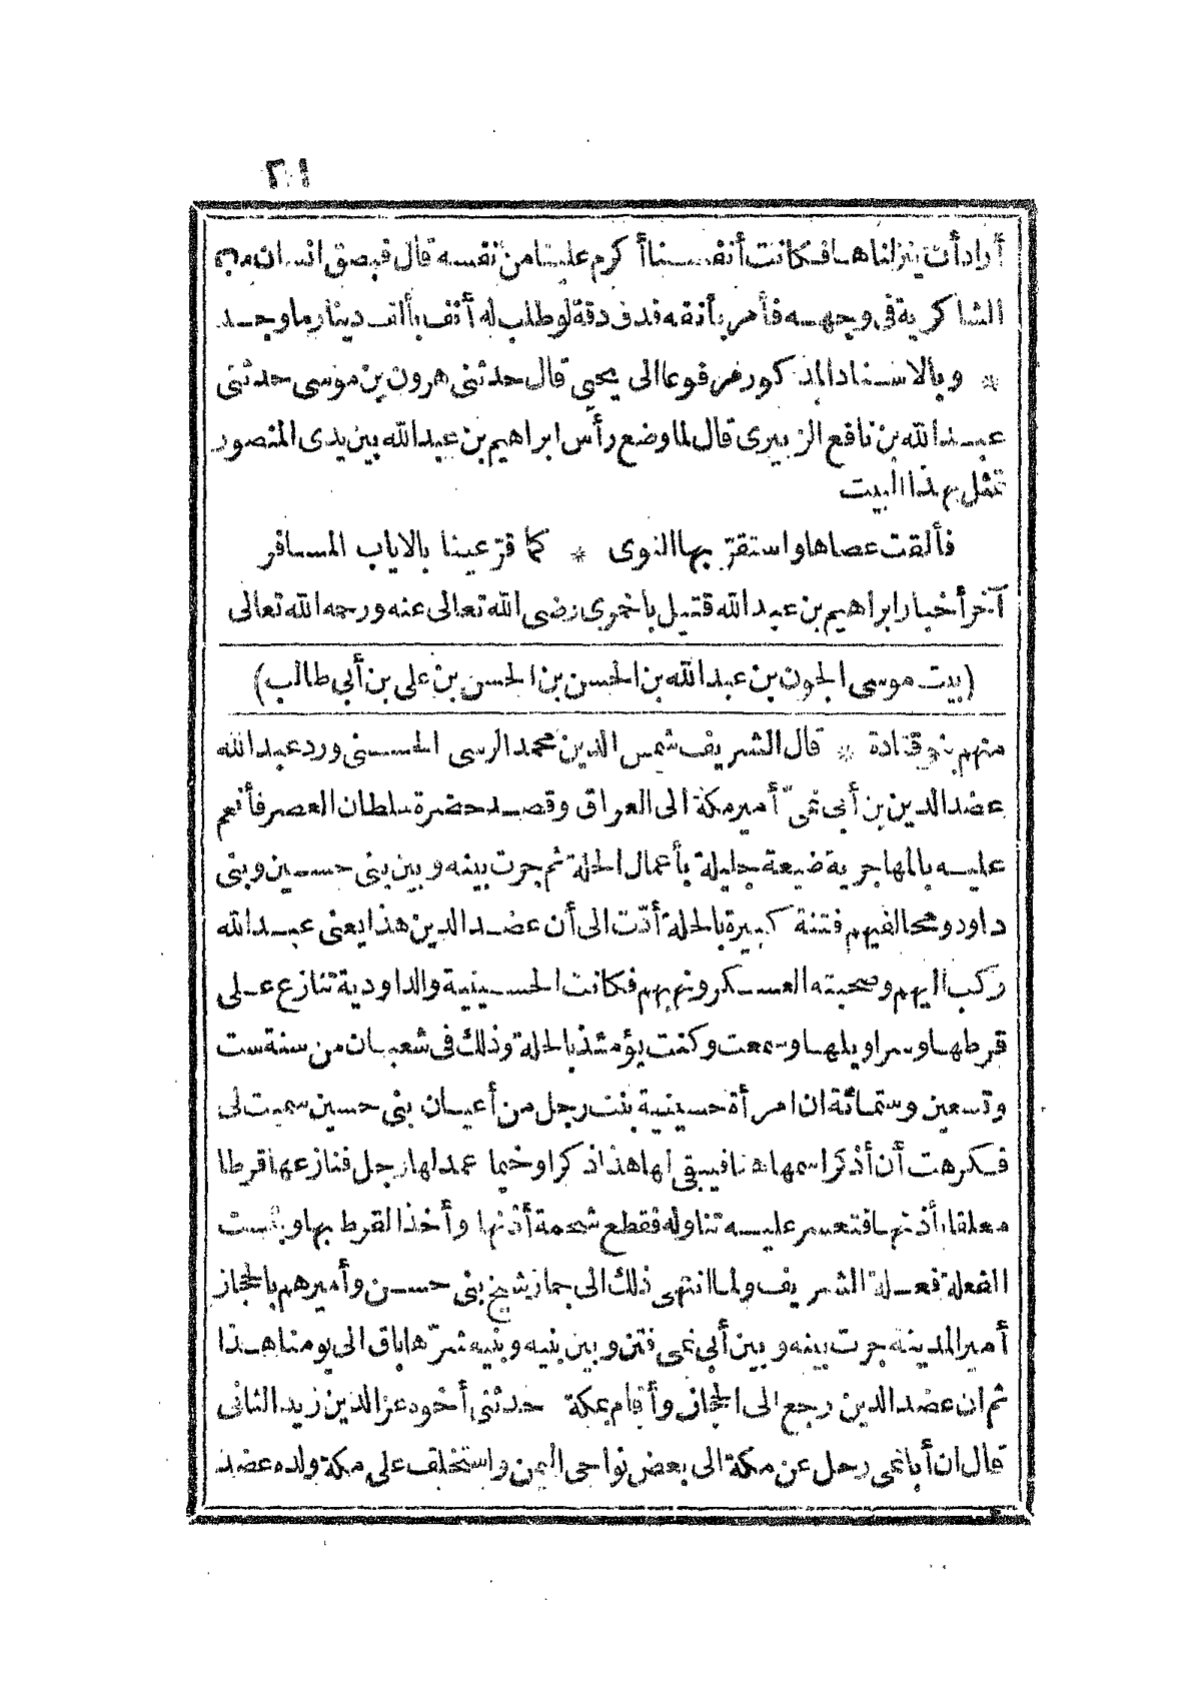 ٢٠١
أراد أن ينزلناها فكانت أنفسنا أكرم علينا من نفسه قال فبصق انسان من
الشاكرية فى وجهه فأمر بأنفه فدق دقة لو طلب له أنف بألف دينار ما وجد
* وبالاسناد المذكور مرفوعا الى يحيى قال حدثنى هرون بن موسى حدثنى
عبد الله بن نافع الزبيرى قال لما وضع رأس ابراهيم بن عبد الله بين يدى المنصور
تمثل بهذا البيت
فألقت عصاها واستقرّ بها النوى * كما قرّ عينا بالاياب المسافر
آخر أخبار ابراهيم بن عبد الله قتيل باخمرى رضى الله تعالى عنه ورحمه الله تعالى
(بيت موسى الجون بن عبد الله بن الحسن بن الحسن بن على بن أبى طالب)
منهم بنو قتادة * قال الشريف شمس الدين محمد الرسى الحسنى ورد عبد الله
عضد الدين بن أبى نمىّ أمير مكة الى العراق وقصد حضرة سلطان العصر فأنعم
عليه بالمهاجرية ضيعة جليلة بأعمال الحلة ثم جرت بينه وبين بنى حسين وبنى
داود ومخالفيهم فتنة كبيرة بالحلة أدّت الى أن عضد الدين هذا يعنى عبد الله
ركب اليهم وصحبته العسكر ونهبهم فكانت الحسينية والداودية تنازع على
قرطها وسراويلها وسمعت وكنت يؤمئذ بالحلة وذلك فى شعبان من سنة ست
وتسعين وستمائة ان امرأة حسينية بنت رجل من أعيان بنى حسين سميت لى
فكرهت أن أذكر اسمها هنا فيبقى لها هذا ذكرا وخيما عمد لها رجل فنازعها قرطا
معلقا بأذنها فتعسر عليه تناوله فقطع شحمة أذنها وأخذ القرط بها وبئست
الفعلة فعلة الشريف ولما انتهى ذلك الى جماز شيخ بنى حسن وأميرهم بالحجاز
أمير المدينة جرت بينه وبين أبى نمى فتن وبين بنيه وبنيه شرّها باق الى يومنا هذا
ثم ان عضد الدين رجع الى الحجاز وأقام بمكة حدثنى أخوه عز الدين زيد الثانى
قال ان أبا نمى رحل عن مكة الى بعض نواحى اليمن واستخلف على مكة ولده عضد